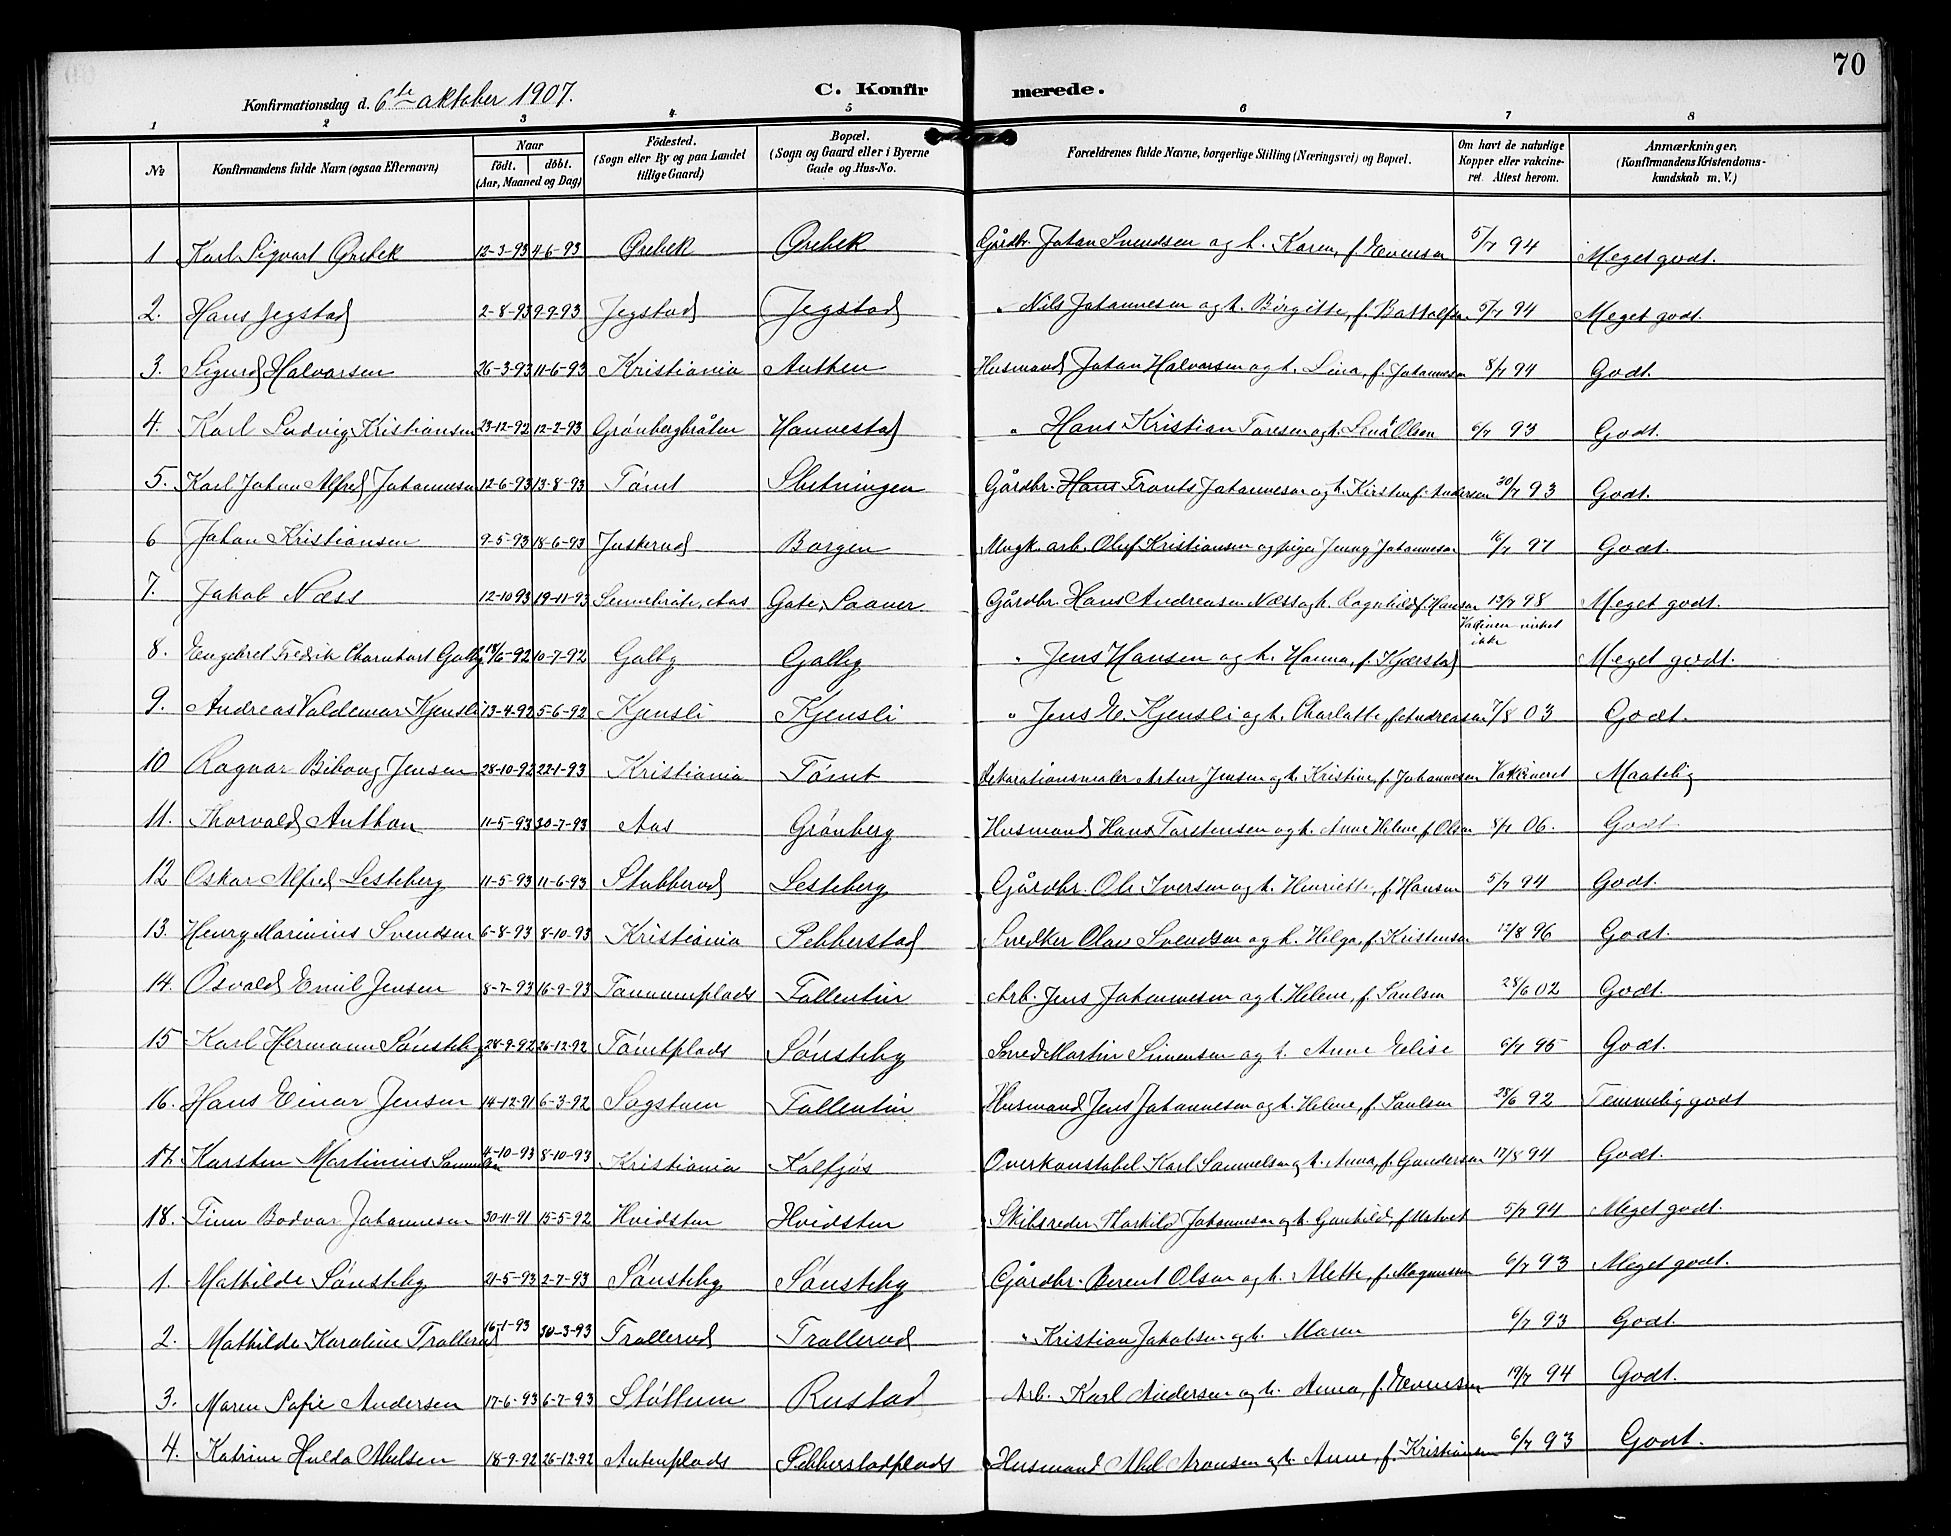 70
Konfirmationsdag d. 6te oktober 1907.
C. Konfir merede.
1 2 3 4 5 6 7 8
No
Konfirmandens fulde Navn (ogsaa Efternavn)
Naar
født. døbt.
(Aar, Maaned og Dag)
Fødested.
(Sogn eller By og paa Landet
tillige Gaard)
Bopæl.
(Sogn og Gaard eller i Byerne
Gade og Hus-No.
Forældrenes fulde Navne, borgerlige Stilling (Næringsvei) og Bopæl.
Om havt de naturlige
Kopper eller vakcine-
ret. Attest herom.
Anmærkninger,
(Konfirmandens Kristendoms-
kundskab m. V.)
1 Karl Sigvart Ørebek 12-3-93 4-6-93 Ørebek Ørebek Gårdbr. Johan Svendsen og h. Karen, f. Evensen 5/7 94 Meget godt.
2. Hans Jegstad 2-8-93 9-9-93 Jegstad Jegstad " Nils Johannesen og h. Birgitte, f. 5/7 94 Meget godt.
3. Sigurd Halvorsen 26-3-93 11-6-93 Kristiania Authen Husmand Johan Halvorsen og h. Lina, f. Johannesen 8/7 94 Godt.
4. Karl Ludvig Kristiansen 23-12-92 12-2-93 Grønbergbråten Hannestad " Hans Kristian Toresen og h. Lena Olsen 6/7 93 Godt.
5. Karl Johan Alfred Johannesen 12-6-93 13-8-93 Tømt Slutningen Gårdbr. Hans Frants Johannesen og h. Kirsten f. Andersen 30/7 93 Godt.
6 Johan Kristiansen 9-5-93 18-6-93 Juskerud Borgen Ungk. arb. Oluf Kristiansen og pige Jenny Johannesen 16/7 97 Godt.
7. Jakob Næss 12-10 93 19-11-93 Sennebråte, Aas Gate, Saaner Gårdbr. Hans Andreasen Næss og h. Ragnhild f. Hansen 13/7 98 Meget godt.
8. Engebret Fredrik Charnhart Galby 18/6-92 10-7-92 Galby Galby " Jens Hansen og h. Hanna, f. Kjærstad Vaccinen virket ikke Meget godt.
9. Andreas Valdemar Kjensli 13-4-92 5-6-92 Kjensli Kjensli " Jens E. Kjensli og h. Charlotte, f. Andreasen 7/8 03 Godt.
10 Ragnar Bibow Jensen 28-10-92 22-1-93 Kristiania Tømt Dekorationsmaler Artur Jensen og h. Kristine, f. Johannesen Vakcineret Maatelig
11. Thorvald Anthon 11-5-93 30-7-93 Aas Grønberg Husmand Hans Torstensen og h. Anne Helene, f. Olsen 8/7 06. Godt
12 Oskar Alfred Lesteberg 11-5-93 11-6-93 Stubberud Lesteberg Gårdbr. Ole Iversen og h. Henriette, f. Hansen 5/7 94 Godt.
13. Henry Marinius Svendsen 6-8-93 8-10-93 Kristiania Pebberstad Snedker Olav Svendsen og h. Helga, f. Kristensen 12/8 96 Godt.
14. Osvald Emil Jensen 8-7-93 16-9-93 Tommenplads Tallentin Arb. Jens Johannesen og h. Helene, f. Paulsen 28/6 02 Godt.
15 Karl Hermann Sønsteby 28-9-92 26-12-92 Tømtplads Sønsteby Snedk. Martin Simensen og h. Anne Elise 6/7 95 Godt.
16. Hans Einar Jensen 14-12-91 6-3-92 Sogstuen Tallentin Husmand Jens Johannesen og h. Helene, f. Paulsen 28/6 92 Temmelig godt
17. Karsten Martinius Samuelsen 4-10-93 8-10-93 Kristiania Kalfjøs Overkonstabel Karl Samuelsen og h. Anna, f. Gundersen 12/8 94 Godt.
18. Finn Bodvar Johannesen 30-11-91 15-5-92 Hvidsten Hvidsten Skibsreder Thorkild Johannesen og h. Gunhild, f. 5/7 94 Meget godt.
1. Mathilde Sønsteby 21-5-93 2-7-93 Sønsteby Sønsteby Gårdbr. Berent Olsen og h. Mette, f. Magnussen 6/7 93 Meget godt.
2. Mathilde Karoline Trollerud 16-1-93 30-3-93 Trollerud Trollerud " Kristian Jakobsen og h. Maren 6/7 93 Godt.
3. Maren Sofie Andersen 17-6-93 6-7-93 Støttum Rustad Arb. Karl Andersen og h. Anna, f. Evensen 19/7 94 Godt.
4. Katrine Hulda Abelsen 18-9-92 26-12-92 Autenplads Pebberstadplads Husmand Abel Aronsen og h. Anne, f. Kristiansen 6/7 93 Godt.